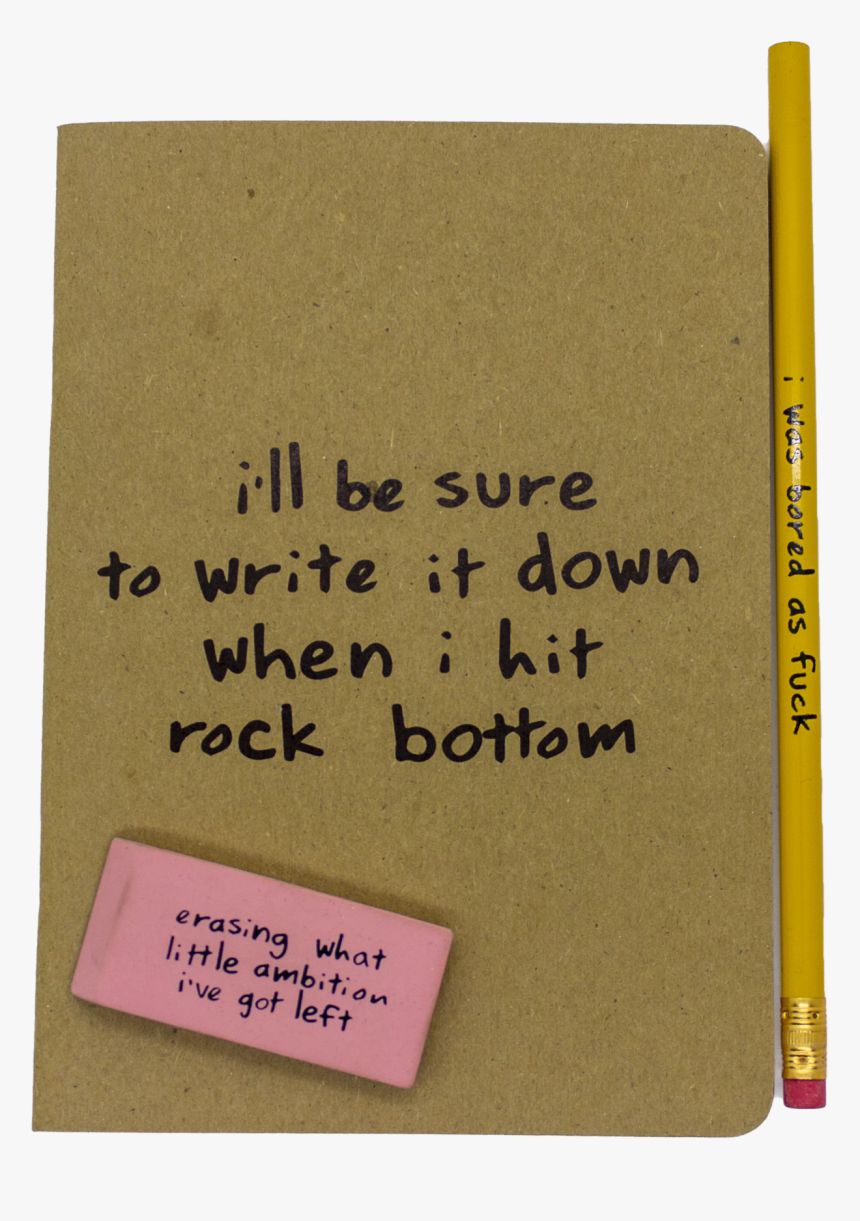 i'll be sure
to write it down
when i hit
rock bottom
i was bored as fuck
erasing what
little ambition
i've got left